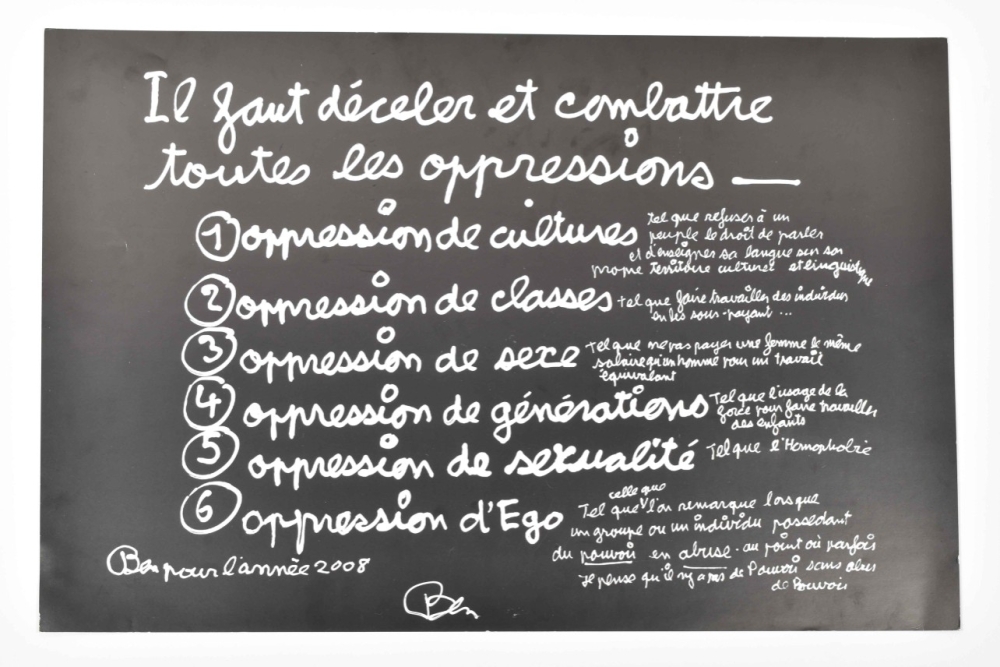 Il faut déceler et combattre
toutes les oppressions —
1 oppression de cultures
tel que refuser à un
peuple le droit de parler
et d'enseigner sa langue sur son
propre territoire culturel et linguistique
2 oppression de classes
tel que faire travailler des individus
en les sous-payant ...
3 oppression de sexe
tel que ne pas payer une femme le même
salaire qu'un homme pour un travail
équivalent
4 oppression de générations
Tel que l'usage de la
force pour faire travailler
des enfants
5 oppression de sexualité
Tel que l'Homophobie
6 oppression d'Ego
celle que
Tel que l'on remarque lorsque
un groupe ou un individu possedant
du pouvoir en abuse - au point où parfois
Je pense qu'il n'y a pas de Pouvoir sans abus
de Pouvoir
Ben pour l'année 2008
Ben